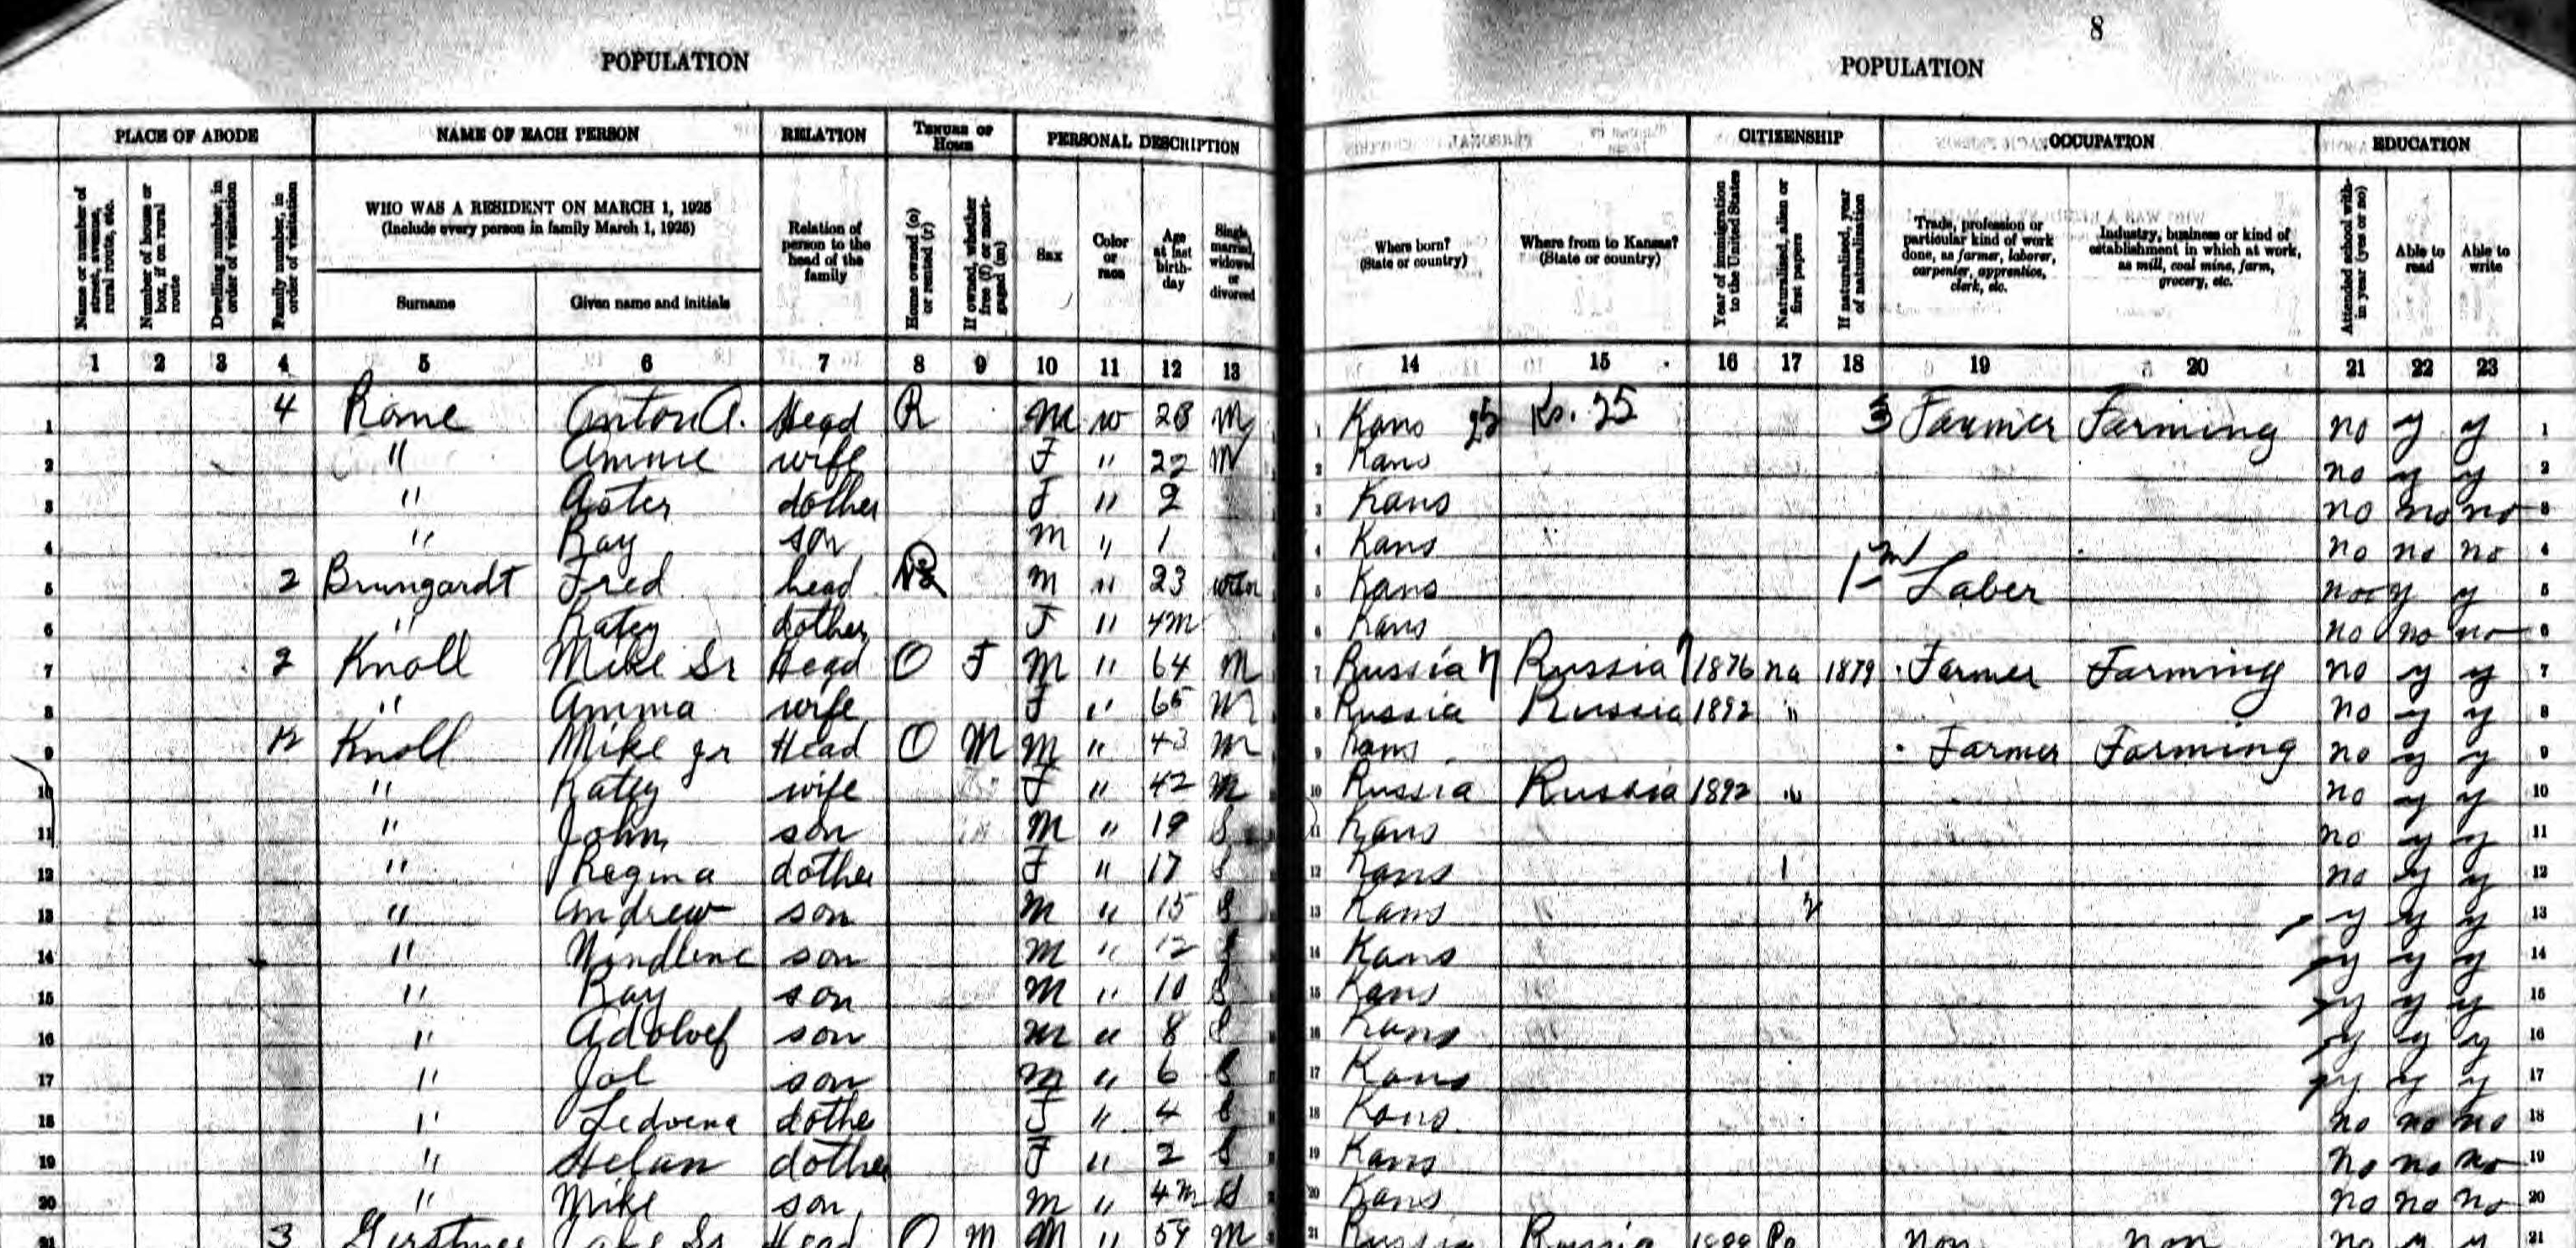 8
POPULATION POPULATION
PLACE OF ABODE NAME OF EACH PERSON RELATION TENURE OF HOME PERSONAL DESCRIPTION CITIZENSHIP OCCUPATION EDUCATION
Name or number of street, avenue, rural route, etc.
Number of house or box, if on rural route
Dwelling number, in order of visitation
Family number, in order of visitation
WHO WAS A RESIDENT ON MARCH 1, 1925
(Include every person in family March 1, 1925)
Surname Given name and initials
Relation of person to the head of the family
Home owned (o) or rented (r)
If owned, whether free (f) or mortgaged (m)
Sex
Color or race
Age at last birth-day
Single, married, widowed or divorced
Where born? (State or country)
Where from to Kansas? (State or country)
Year of immigration to the United States
Naturalized, alien or first papers
If naturalized, year of naturalization
Trade, profession or particular kind of work done, as farmer, laborer, carpenter, apprentice, clerk, etc.
Industry, business or kind of establishment in which at work, as mill, coal mine, farm, grocery, etc.
Attended school with-in year (yes or no)
Able to read
Able to write
1 2 3 4 5 6 7 8 9 10 11 12 13 14 15 16 17 18 19 20 21 22 23
1 4 Rome Anton A. Head R M w 28 M 1 Kans 25 Ks. 25 3 Farmer Farming no y y 1
2 " Ammie wife F " 22 M 2 Kans no y y 2
3 " Aster dother F " 2 3 Kans no no no 3
4 " Ray son M " 1 4 Kans no no no 4
5 2 Brungardt Fred head R M " 23 5 Kans 1 Laber no y y 5
6 " Katey dother F " 4m 6 Kans no no no 6
7 2 Knoll Mike Sr Head O F M " 64 M 7 Russia Russia 1876 na 1879 Farmer Farming no y y 7
8 " Amma wife F " 65 M 8 Russia Russia 1892 " no y y 8
9 12 Knoll Mike jr Head O M M " 43 M 9 Kans Farmer Farming no y y 9
10 " Katey wife F " 42 M 10 Russia Russia 1892 " no y y 10
11 " John son M " 19 S 11 Kans no y y 11
12 " Regina dother F " 17 S 12 Kans no y y 12
13 " Andrew son M " 15 S 13 Kans y y y 13
14 " son M " 12 S 14 Kans y y y 14
15 " Ray son M " 10 S 15 Kans y y y 15
16 " Adolvef son M " 8 S 16 Kans y y y 16
17 " son M " 6 S 17 Kans y y y 17
18 " Ledvena dothe F " 4 S 18 Kans no no no 18
19 " Helan dother F " 2 S 19 Kans no no no 19
20 " Mike son M " 4m S 20 Kans no no no 20
21 3 Sr Head O M M " 59 M 21 Russia Russia non non no y y 21